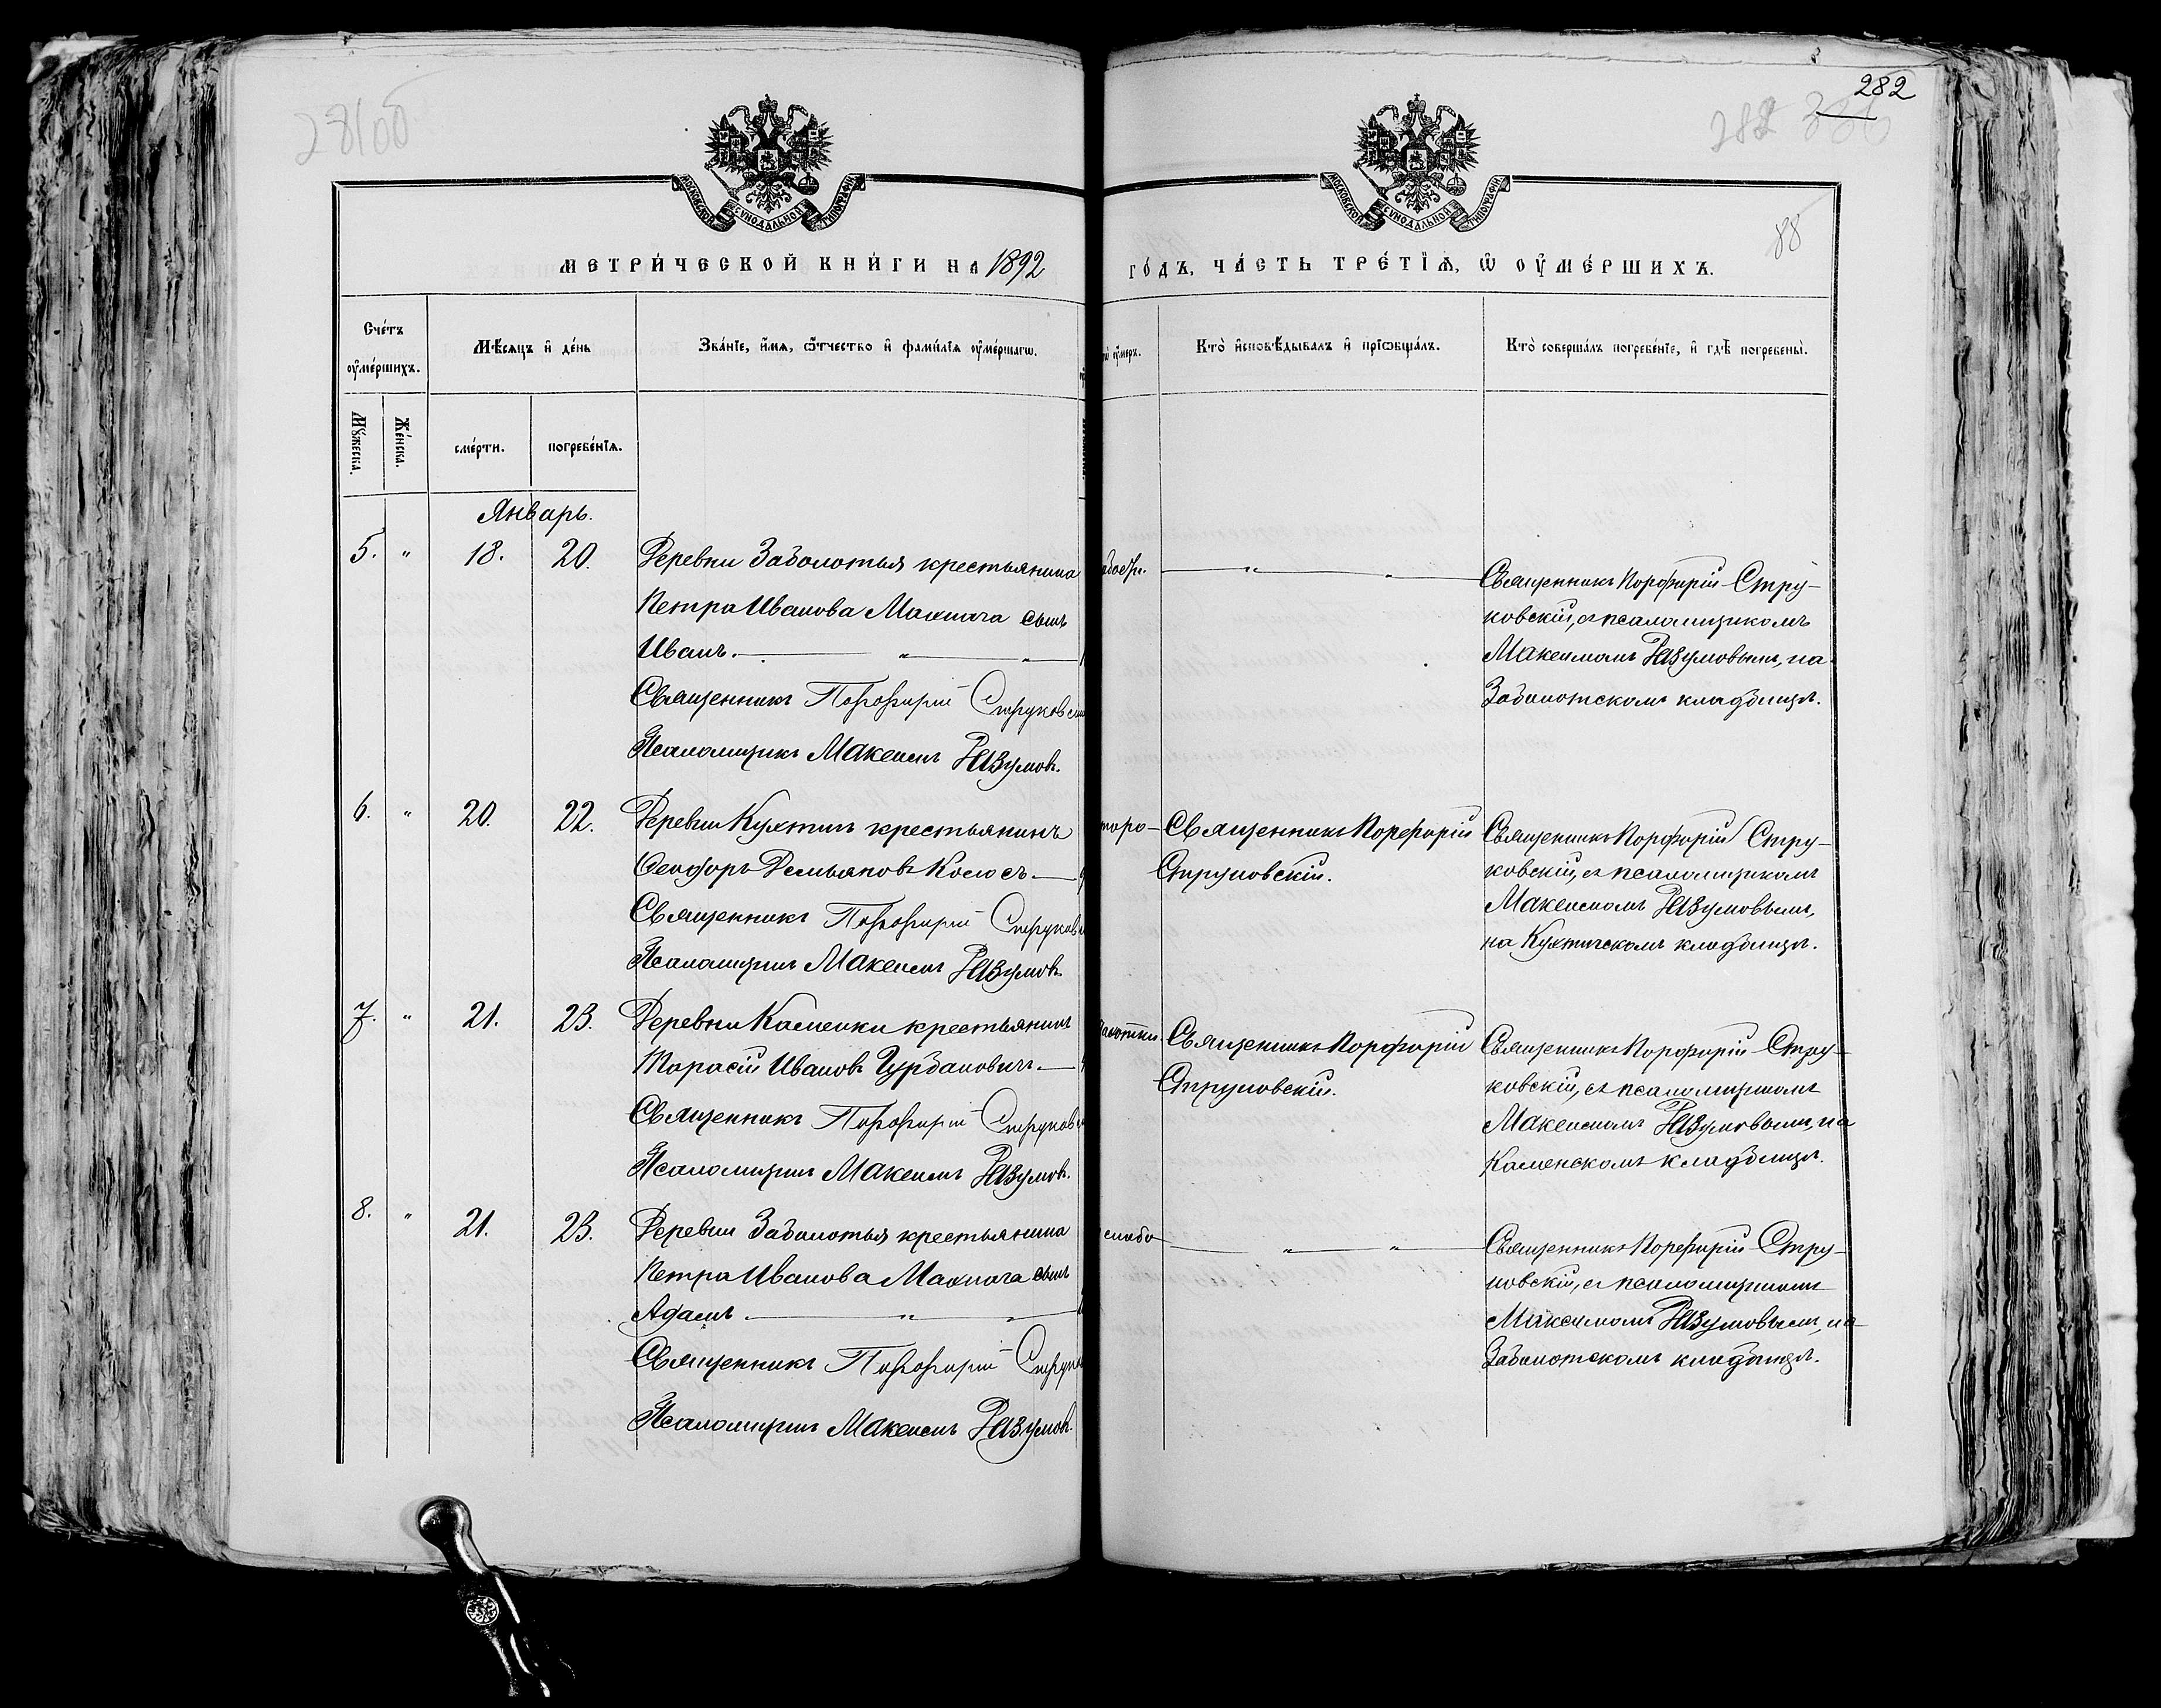 282
281об
282
88
МОСКОВСКОЙ СѴНОДАЛЬНОЙ ТИПОГРАФІИ
МОСКОВСКОЙ СѴНОДАЛЬНОЙ ТИПОГРАФІИ
МЕТРИ́ЧЕСКОЙ КНИ́ГИ НА 1892
ГО́ДЪ, ЧА́СТЬ ТРЕ́ТІѦ, Ѡ҆ ОУ҆МЕ́РШИХЪ.
Сче́тъ оу҆ме́ршихъ.
Мѣ́сѧцъ и҆ де́нь
Зва́нїе, и҆́мѧ, ѻ҆́тчество и҆ фами́лїѧ оу҆ме́ршагѡ.
оу҆́меръ.
Кто̀ и҆сповѣ́дывалъ и҆ прїѡбща́лъ.
Кто̀ соверша́лъ погребе́нїе, и҆ гдѣ̀ погребены̀.
Мꙋ́жеска.
Же́нска.
сме́рти.
погребе́нїѧ.
Январь.
5. " 18. 20.
Деревни Заболотья крестьянина
Петра Иванова Махнача сынъ
Иванъ. " "
Священникъ Порфирій Струковскі
Псаломщикъ Максимъ Разумовъ.
" "
Священникъ Порфирій Стру-
ковскій, съ псаломщикомъ
Максимомъ Разумовымъ, на
Заболотскомъ кладбищѣ.
6. " 20. 22.
Деревни Кухтичъ крестьянинъ
Ѳеодоръ Демьяновъ Колосъ.
Священникъ Порфирій Струковс
Псаломщикъ Максимъ Разумовъ.
Священникъ Порфирій
Струковскій.
Священникъ Порфирій Стру-
ковскій, съ псаломщикомъ
Максимомъ Разумовымъ,
на Кухтичскомъ кладбищѣ.
7. " 21. 23.
Деревни Каменки крестьянинъ
Тарасій Ивановъ Гурбановичъ.
Священникъ Порфирій Струковс
Псаломщикъ Максимъ Разумовъ.
Священникъ Порфирій
Струковскій.
Священникъ Порфирій Стру-
ковскій, съ псаломщикомъ
Максимомъ Разумовымъ, на
Каменскомъ кладбищѣ.
8. " 21. 23.
Деревни Заболотья крестьянина
Петра Иванова Махнача сынъ
Адамъ. " "
Священникъ Порфирій Струко
Псаломщикъ Максимъ Разумовъ.
слабо
" "
Священникъ Порфирій Стру-
ковскій, съ псаломщикомъ
Максимомъ Разумовымъ, на
Заболотскомъ кладбищѣ.